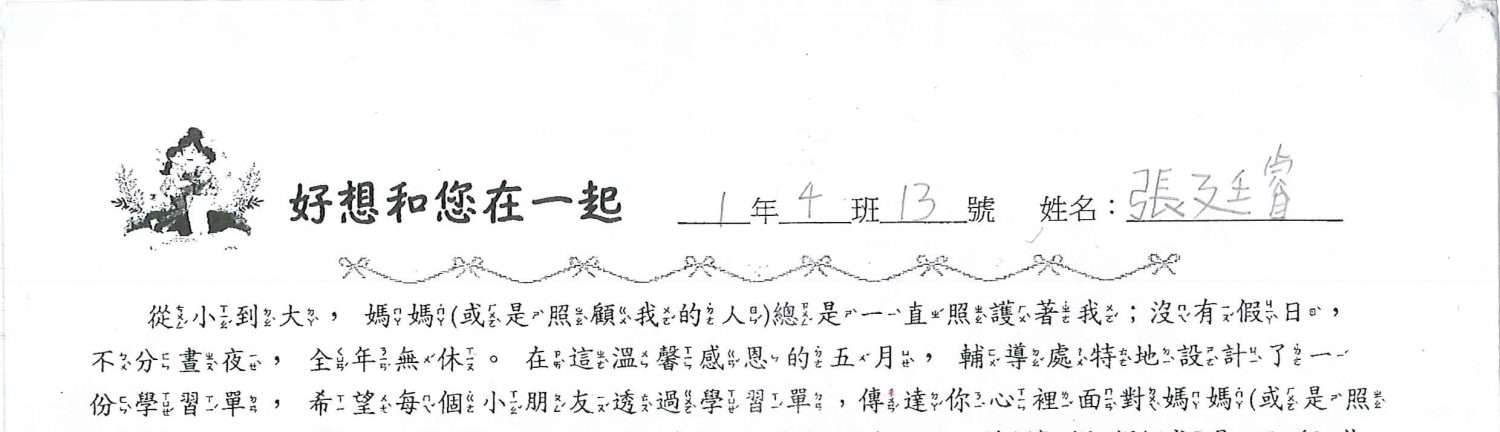 好想和您在一起 1年4班13號 姓名：張廷睿
從小到大，媽媽(或是照顧我的人)總是一直照護著我；沒有假日，
不分晝夜，全年無休。在這溫馨感恩的五月，輔導處特地設計了一
份學習單，希望每個小朋友透過學習單，傳達你心裡面對媽媽(或是照